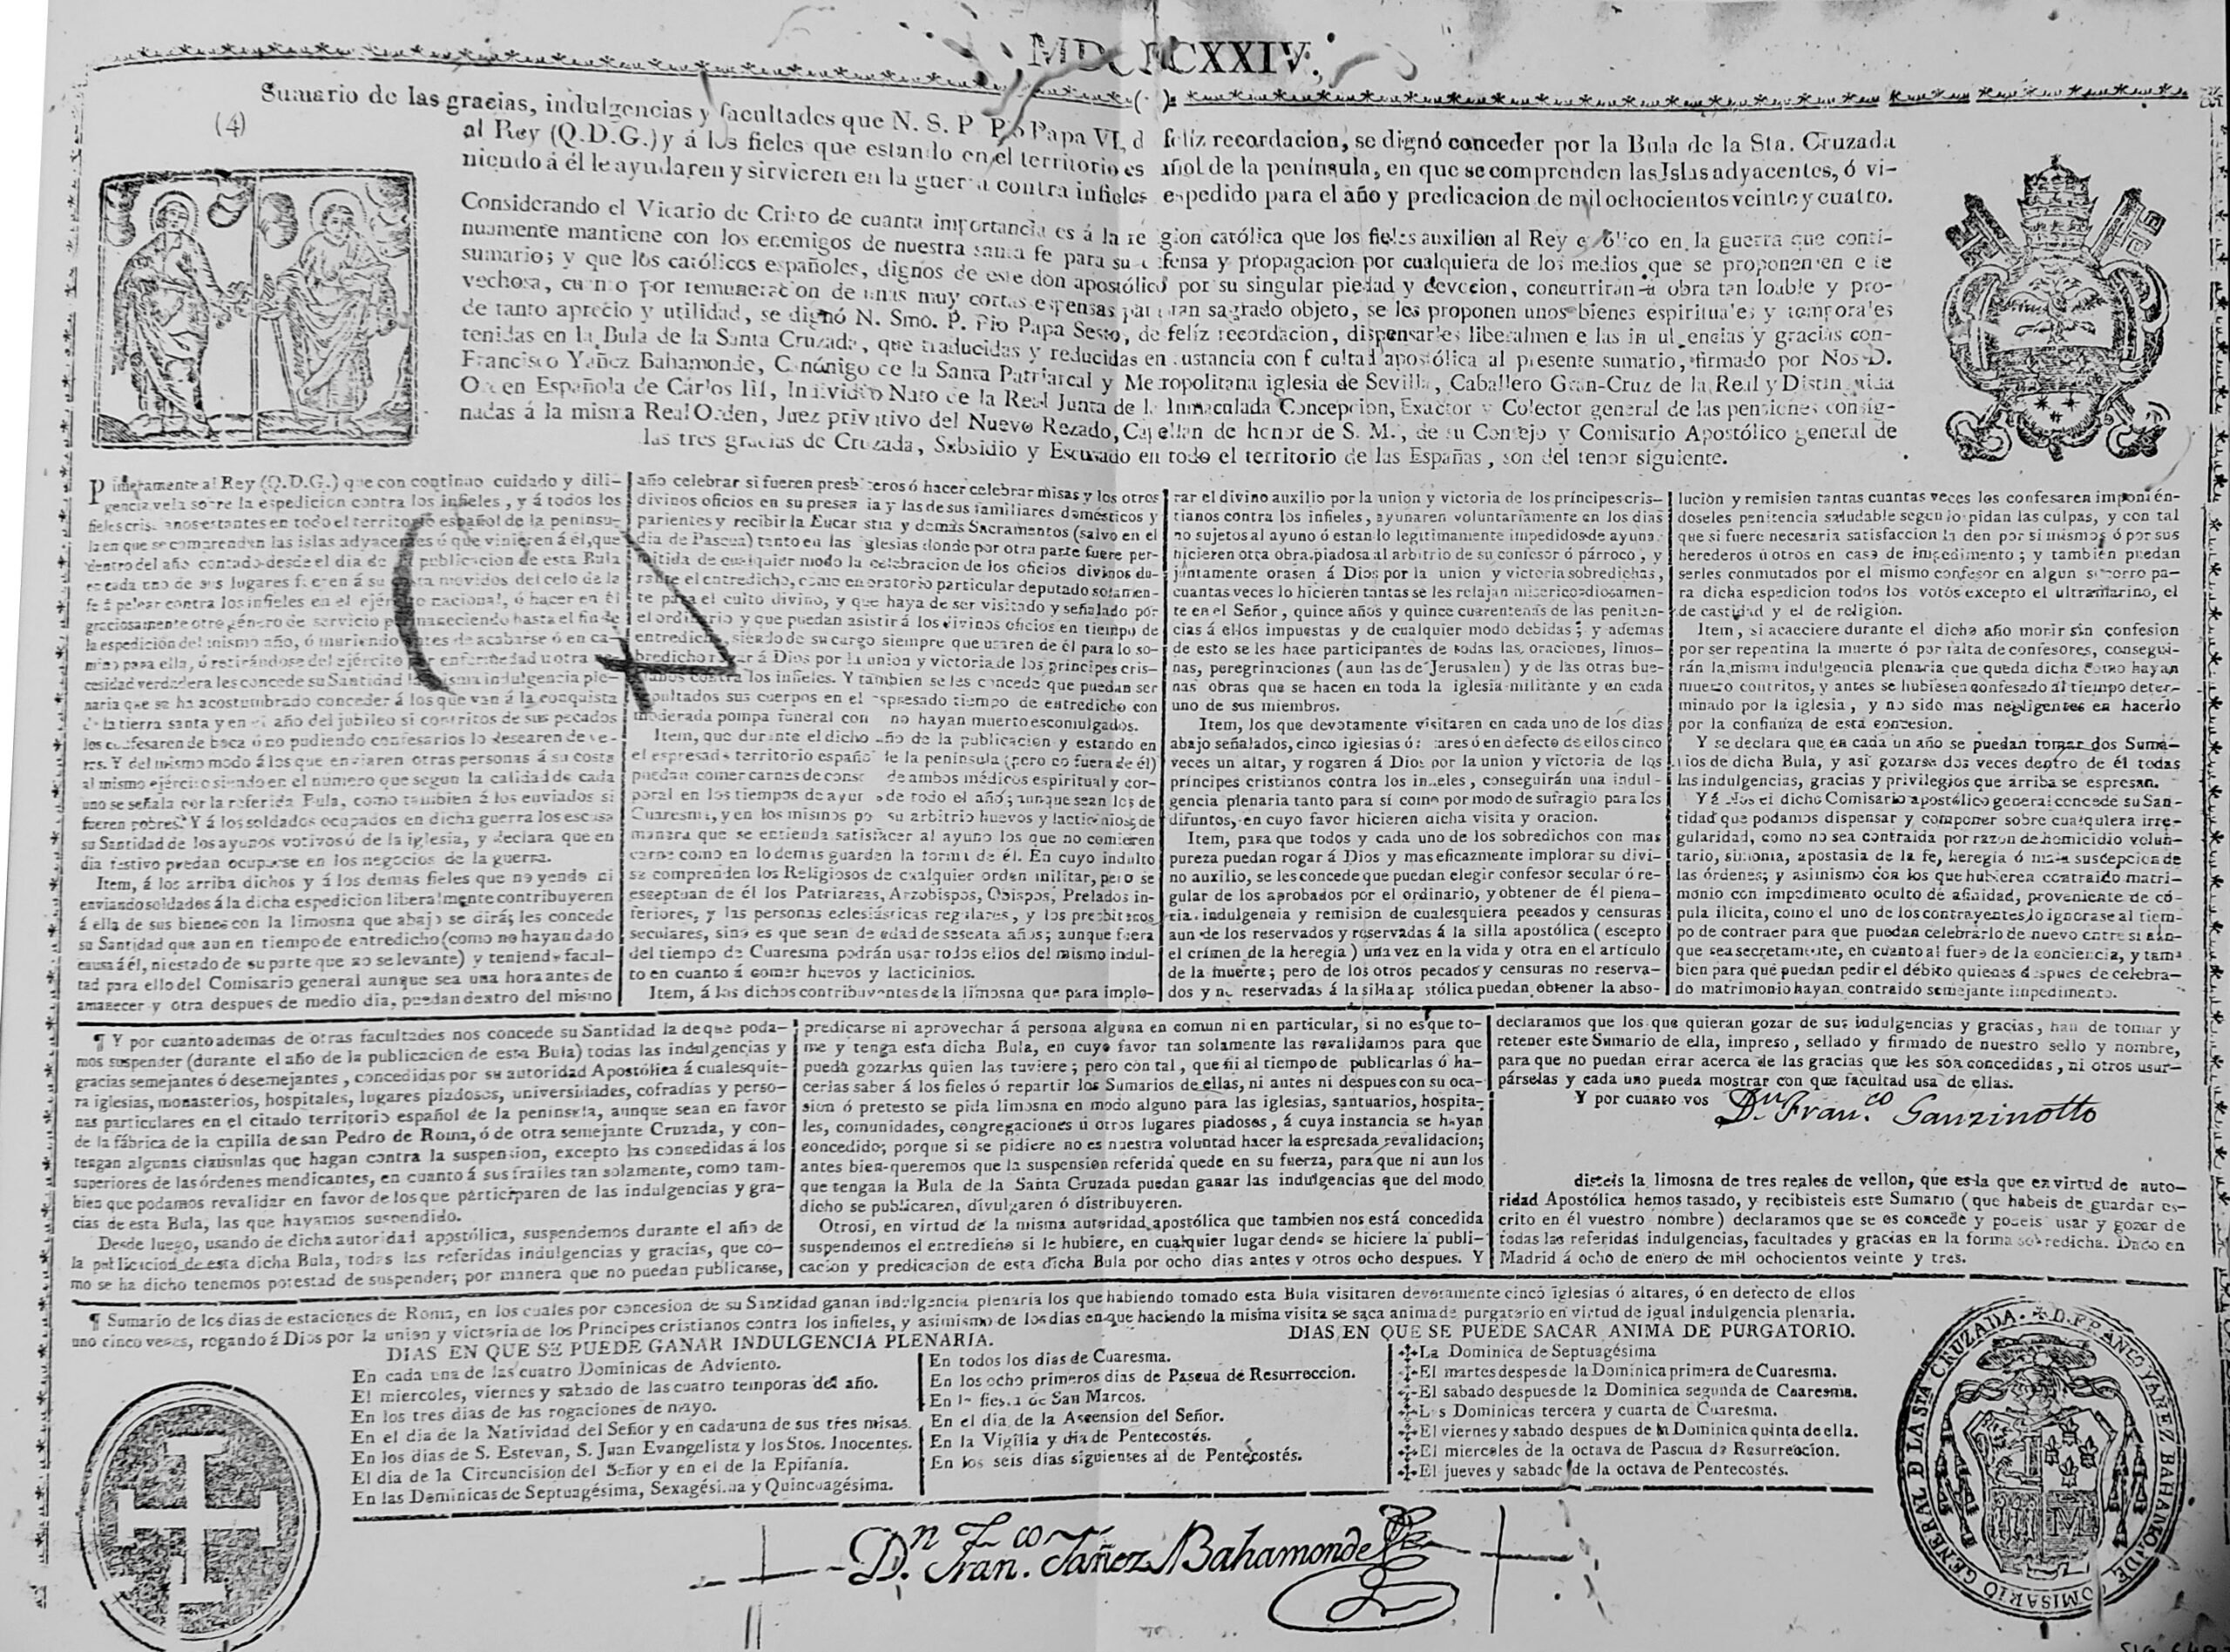 MDCCCXXIV.
(4)
Sumario de las gracias, indulgencias y facultades que N. S. P. Pio Papa VI, d felíz recordacion, se dignó conceder por la Bula de la Sta. Cruzada
al Rey (Q.D.G.) y á los fieles que estando en el territorio es añol de la península, en que se comprenden las Islas adyacentes, ó vi-
niendo á él le ayudaren y sirvieren en la guerra contra infieles espedido para el año y predicacion de mil ochocientos veinte y cuatro.
Considerando el Vicario de Cristo de cuanta importancia es á la re gion católica que los fieles auxilien al Rey en la guerra que conti-
nuamente mantiene con los enemigos de nuestra santa fe para su defensa y propagacion por cualquiera de los medios que se proponen en este
sumario; y que los católicos españoles, dignos de este don apostólico por su singular piedad y devocion, concurrirán á obra tan loable y pro-
vechosa, cuanto por remuneracion de unas muy cortas espensas para tan sagrado objeto, se les proponen unos bienes espirituales y temporales
de tanto aprecio y utilidad, se dignó N. Smo. P. Pio Papa Sesto, de felíz recordacion, dispensarles liberalmente las indulgencias y gracias con-
tenidas en la Bula de la Santa Cruzada, que traducidas y reducidas en sustancia con facultad apostólica al presente sumario, firmado por Nos D.
Francisco Yañez Bahamonde, Canónigo de la Santa Patriarcal y Metropolitana iglesia de Sevilla, Caballero Gran-Cruz de la Real y Distinguida
Orden Española de Cárlos III, Individuo Nato de la Real Junta de la Inmaculada Concepcion, Exactor y Colector general de las pensiones consig-
nadas á la misma Real Orden, Juez privativo del Nuevo Rezado, Capellan de honor de S. M., de su Consejo y Comisario Apostólico general de
las tres gracias de Cruzada, Subsidio y Escusado en todo el territorio de las Españas, son del tenor siguiente.
Primeramente al Rey (Q.D.G.) que con continuo cuidado y dili-
gencia vela sobre la espedicion contra los infieles, y á todos los
fieles cristianos estantes en todo el territorio español de la penínsu-
la en que se comprenden las islas adyacentes ó que vinieren á él, que
dentro del año contado desde el dia de la publicacion de esta Bula
en cada uno de sus lugares fueren á su costa movidos del celo de la
fe á pelear contra los infieles en el ejército nacional, ó hacer en él
graciosamente otro género de servicio permaneciendo hasta el fin de
la espedición del mismo año, ó muriendo antes de acabarse ó en ca-
mino para ella, ó retirándose del ejército por enfermedad u otra ne-
cesidad verdadera les concede su Santidad la misma indulgencia ple-
naria que se ha acostumbrado conceder á los que van á la conquista
de la tierra santa y en el año del jubileo si contritos de sus pecados
los confesaren de boca ó no pudiendo confesarlos lo desearen de ve-
ras. Y del mismo modo á los que enviaren otras personas á su costa
al mismo ejército siendo en el número que segun la calidad de cada
uno se señala por la referida Bula, como tambien á los enviados si
fueren pobres. Y á los soldados ocupados en dicha guerra los escusa
su Santidad de los ayunos votivos ú de la iglesia, y declara que en
dia festivo puedan ocuparse en los negocios de la guerra.
Item, á los arriba dichos y á los demas fieles que no yendo ni
enviando soldados á la dicha espedicion liberalmente contribuyeren
á ella de sus bienes con la limosna que abajo se dirá; les concede
su Santidad que aun en tiempo de entredicho (como no hayan dado
causa á él, ni estado de su parte que no se levante) y teniendo facul-
tad para ello del Comisario general aunque sea una hora antes de
amanecer y otra despues de medio dia, puedan dentro del mismo
año celebrar si fueren presbíteros ó hacer celebrar misas y los otros
divinos oficios en su presencia y las de sus familiares domésticos y
parientes y recibir la Eucaristía y demás Sacramentos (salvo en el
dia de Pascua) tanto en las iglesias donde por otra parte fuere per-
mitida de cualquier modo la celebracion de los oficios divinos du-
rante el entredicho, como en oratorio particular deputado solamen-
te para el culto divino, y que haya de ser visitado y señalado por
el ordinario y que puedan asistir á los divinos oficios en tiempo de
entredicho, siendo de su cargo siempre que usaren de él para lo so-
bredicho rogar á Dios por la union y victoria de los príncipes cris-
tianos contra los infieles. Y tambien se les concede que puedan ser
sepultados sus cuerpos en el espresado tiempo de entredicho con
moderada pompa funeral con no hayan muerto escomulgados.
Item, que durante el dicho año de la publicacion y estando en
el espresado territorio español de la península (pero no fuera de él)
puedan comer carnes de consejo de ambos médicos espiritual y cor-
poral en los tiempos de ayuno de todo el año, aunque sean los de
Cuaresma, y en los mismos po su arbitrio huevos y lacticinios; de
manera que se entienda satisfacer al ayuno los que no comieren
carne como en lo demas guarden la forma de él. En cuyo indulto
se comprenden los Religiosos de cualquier orden militar, pero se
esceptuan de él los Patriarcas, Arzobispos, Obispos, Prelados in-
feriores, y las personas eclesiásticas regulares, y los presbíteros
seculares, sino es que sean de edad de sesenta años; aunque fuera
del tiempo de Cuaresma podrán usar todos ellos del mismo indul-
to en cuanto á comer huevos y lacticinios.
Item, á los dichos contribuyentes de la limosna que para implo-
rar el divino auxilio por la union y victoria de los príncipes cris-
tianos contra los infieles, ayunaren voluntariamente en los dias
no sujetos al ayuno ó estando legitimamente impedidos de ayunar
hicieren otra obra piadosa al arbitrio de su confesor ó párroco, y
juntamente orasen á Dios por la union y victoria sobredichas,
cuantas veces lo hicieren tantas se les relajan misericordiosamen-
te en el Señor, quince años y quince cuarentenas de las peniten-
cias á ellos impuestas y de cualquier modo debidas; y ademas
de esto se les hace participantes de todas las oraciones, limos-
nas, peregrinaciones (aun las de Jerusalen) y de las otras bue-
nas obras que se hacen en toda la iglesia militante y en cada
uno de sus miembros.
Item, los que devotamente visitaren en cada uno de los dias
abajo señalados, cinco iglesias ó altares ó en defecto de ellos cinco
veces un altar, y rogaren á Dios por la union y victoria de los
príncipes cristianos contra los infieles, conseguirán una indul-
gencia plenaria tanto para sí como por modo de sufragio para los
difuntos, en cuyo favor hicieren dicha visita y oracion.
Item, para que todos y cada uno de los sobredichos con mas
pureza puedan rogar á Dios y mas eficazmente implorar su divi-
no auxilio, se les concede que puedan elegir confesor secular ó re-
gular de los aprobados por el ordinario, y obtener de él plena-
ria indulgencia y remision de cualesquiera pecados y censuras
aun de los reservados y reservadas á la silla apostólica (escepto
el crímen de la heregia) una vez en la vida y otra en el artículo
de la muerte; pero de los otros pecados y censuras no reserva-
dos y no reservadas á la silla apostólica puedan obtener la abso-
lucion y remision tantas cuantas veces los confesaren imponién-
doseles penitencia saludable segun lo pidan las culpas, y con tal
que si fuere necesaria satisfaccion la den por sí mismos ó por sus
herederos ú otros en caso de impedimento; y tambien puedan
serles conmutados por el mismo confesor en algun socorro pa-
ra dicha espedicion todos los votos excepto el ultramarino, el
de castidad y el de religion.
Item, si acaeciere durante el dicho año morir sin confesion
por ser repentina la muerte ó por falta de confesores, consegui-
rán la misma indulgencia plenaria que queda dicha como hayan
muerto contritos, y antes se hubiesen confesado al tiempo deter-
minado por la iglesia, y no sido mas negligentes en hacerlo
por la confianza de esta concesion.
Y se declara que en cada un año se puedan tomar dos Suma-
rios de dicha Bula, y asi gozarse dos veces dentro de él todas
las indulgencias, gracias y privilegios que arriba se espresan.
Y á Nos el dicho Comisario apostólico general concede su San-
tidad que podamos dispensar y componer sobre cualquiera irre-
gularidad, como no sea contraida por razon de homicidio volun-
tario, simonia, apostasia de la fe, heregia ó mala suscepcion de
las órdenes; y asimismo con los que hubieren contraido matri-
monio con impedimento oculto de afinidad, proveniente de có-
pula ilícita, como el uno de los contrayentes lo ignorase al tiem-
po de contraer para que puedan celebrarlo de nuevo entre si aun-
que sea secretamente, en cuanto al fuero de la conciencia, y tam-
bien para que puedan pedir el débito quienes despues de celebra-
do matrimonio hayan contraido semejante impedimento.
¶ Y por cuanto ademas de otras facultades nos concede su Santidad la de que poda-
mos suspender (durante el año de la publicacion de esta Bula) todas las indulgencias y
gracias semejantes ó desemejantes, concedidas por su autoridad Apostólica á cualesquie-
ra iglesias, monasterios, hospitales, lugares piadosos, universidades, cofradias y perso-
nas particulares en el citado territorio español de la península, aunque sean en favor
de la fábrica de la capilla de san Pedro de Roma, ó de otra semejante Cruzada, y con-
tengan algunas clausulas que hagan contra la suspension, excepto las concedidas á los
superiores de las órdenes mendicantes, en cuanto á sus frailes tan solamente, como tam-
bien que podamos revalidar en favor de los que participaren de las indulgencias y gra-
cias de esta Bula, las que hayamos suspendido.
Desde luego, usando de dicha autoridad apostólica, suspendemos durante el año de
la publicacion de esta dicha Bula, todas las referidas indulgencias y gracias, que co-
mo se ha dicho tenemos potestad de suspender; por manera que no puedan publicarse,
predicarse ni aprovechar á persona alguna en comun ni en particular, si no es que to-
me y tenga esta dicha Bula, en cuyo favor tan solamente las revalidamos para que
pueda gozarlas quien las tuviere; pero con tal, que ni al tiempo de publicarlas ó ha-
cerlas saber á los fieles ó repartir los Sumarios de ellas, ni antes ni despues con su oca-
sion ó pretesto se pida limosna en modo alguno para las iglesias, santuarios, hospita-
les, comunidades, congregaciones ú otros lugares piadosos, á cuya instancia se hayan
concedido; porque si se pidiere no es nuestra voluntad hacer la espresada revalidacion;
antes bien queremos que la suspension referida quede en su fuerza, para que ni aun los
que tengan la Bula de la Santa Cruzada puedan ganar las indulgencias que del modo
dicho se publicaren, divulgaren ó distribuyeren.
Otrosi, en virtud de la misma autoridad apostólica que tambien nos está concedida
suspendemos el entredicho si le hubiere, en cualquier lugar donde se hiciere la publi-
cacion y predicacion de esta dicha Bula por ocho dias antes y otros ocho despues. Y
declaramos que los que quieran gozar de sus indulgencias y gracias, han de tomar y
retener este Sumario de ella, impreso, sellado y firmado de nuestro sello y nombre,
para que no puedan errar acerca de las gracias que les son concedidas, ni otros usur-
párselas y cada uno pueda mostrar con que facultad usa de ellas.
Y por cuanto vos Dn. Fran.co Ganzinotto
disteis la limosna de tres reales de vellon, que es la que en virtud de auto-
ridad Apostólica hemos tasado, y recibisteis este Sumario (que habeis de guardar es-
crito en él vuestro nombre) declaramos que se os concede y podeis usar y gozar de
todas las referidas indulgencias, facultades y gracias en la forma sobredicha. Dado en
Madrid á ocho de enero de mil ochocientos veinte y tres.
¶ Sumario de los dias de estaciones de Roma, en los cuales por concesion de su Santidad ganan indulgencia plenaria los que habiendo tomado esta Bula visitaren devotamente cinco iglesias ó altares, ó en defecto de ellos
uno cinco veces, rogando á Dios por la union y victoria de los Príncipes cristianos contra los infieles, y asimismo de los dias en que haciendo la misma visita se saca anima de purgatorio en virtud de igual indulgencia plenaria.
DIAS EN QUE SE PUEDE GANAR INDULGENCIA PLENARIA.
En cada una de las cuatro Dominicas de Adviento.
El miercoles, viernes y sabado de las cuatro temporas del año.
En los tres dias de las rogaciones de mayo.
En el dia de la Natividad del Señor y en cada una de sus tres misas.
En los dias de S. Estevan, S. Juan Evangelista y los Stos. Inocentes.
El dia de la Circuncision del Señor y en el de la Epifanía.
En las Dominicas de Septuagésima, Sexagésima y Quincuagésima.
En todos los dias de Cuaresma.
En los ocho primeros dias de Pascua de Resurreccion.
En la fiesta de San Marcos.
En el dia de la Ascension del Señor.
En la Vigilia y dia de Pentecostés.
En los seis dias siguienses al de Pentecostés.
DIAS EN QUE SE PUEDE SACAR ANIMA DE PURGATORIO.
La Dominica de Septuagésima
El martes despes de la Dominica primera de Cuaresma.
El sabado despues de la Dominica segunda de Cuaresma.
Las Dominicas tercera y cuarta de Cuaresma.
El viernes y sabado despues de la Dominica quinta de ella.
El miercoles de la octava de Pascua de Resurreccion.
El jueves y sabado de la octava de Pentecostés.
D. FRANCO YAÑEZ BAHAMONDE, COMISARIO GENERAL D LA STA CRUZADA.
M
Dn. Fran.co Yañez Bahamonde